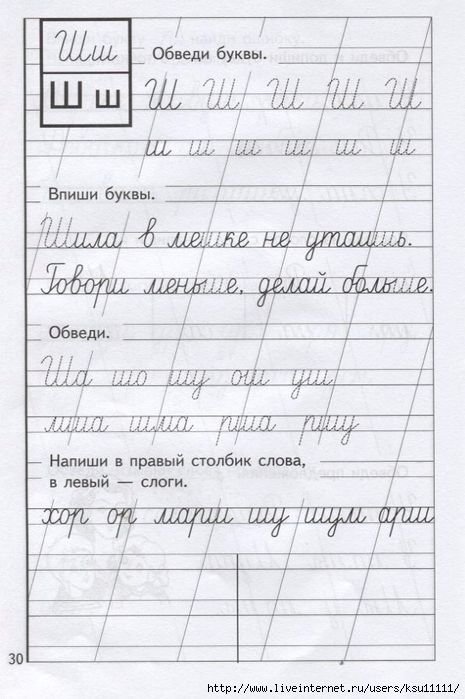 Шш
Обведи буквы.
Ш ш
Ш Ш Ш Ш Ш
ш ш ш ш ш ш
Впиши буквы.
Шила в мешке не утаишь.
Говори меньше, делай больше.
Обведи.
Ша шо шу ош уш
лша шма рша ршу
Напиши в правый столбик слова,
в левый — слоги.
хор ор марш шу шум арш
30
http://www.liveinternet.ru/users/ksu11111/